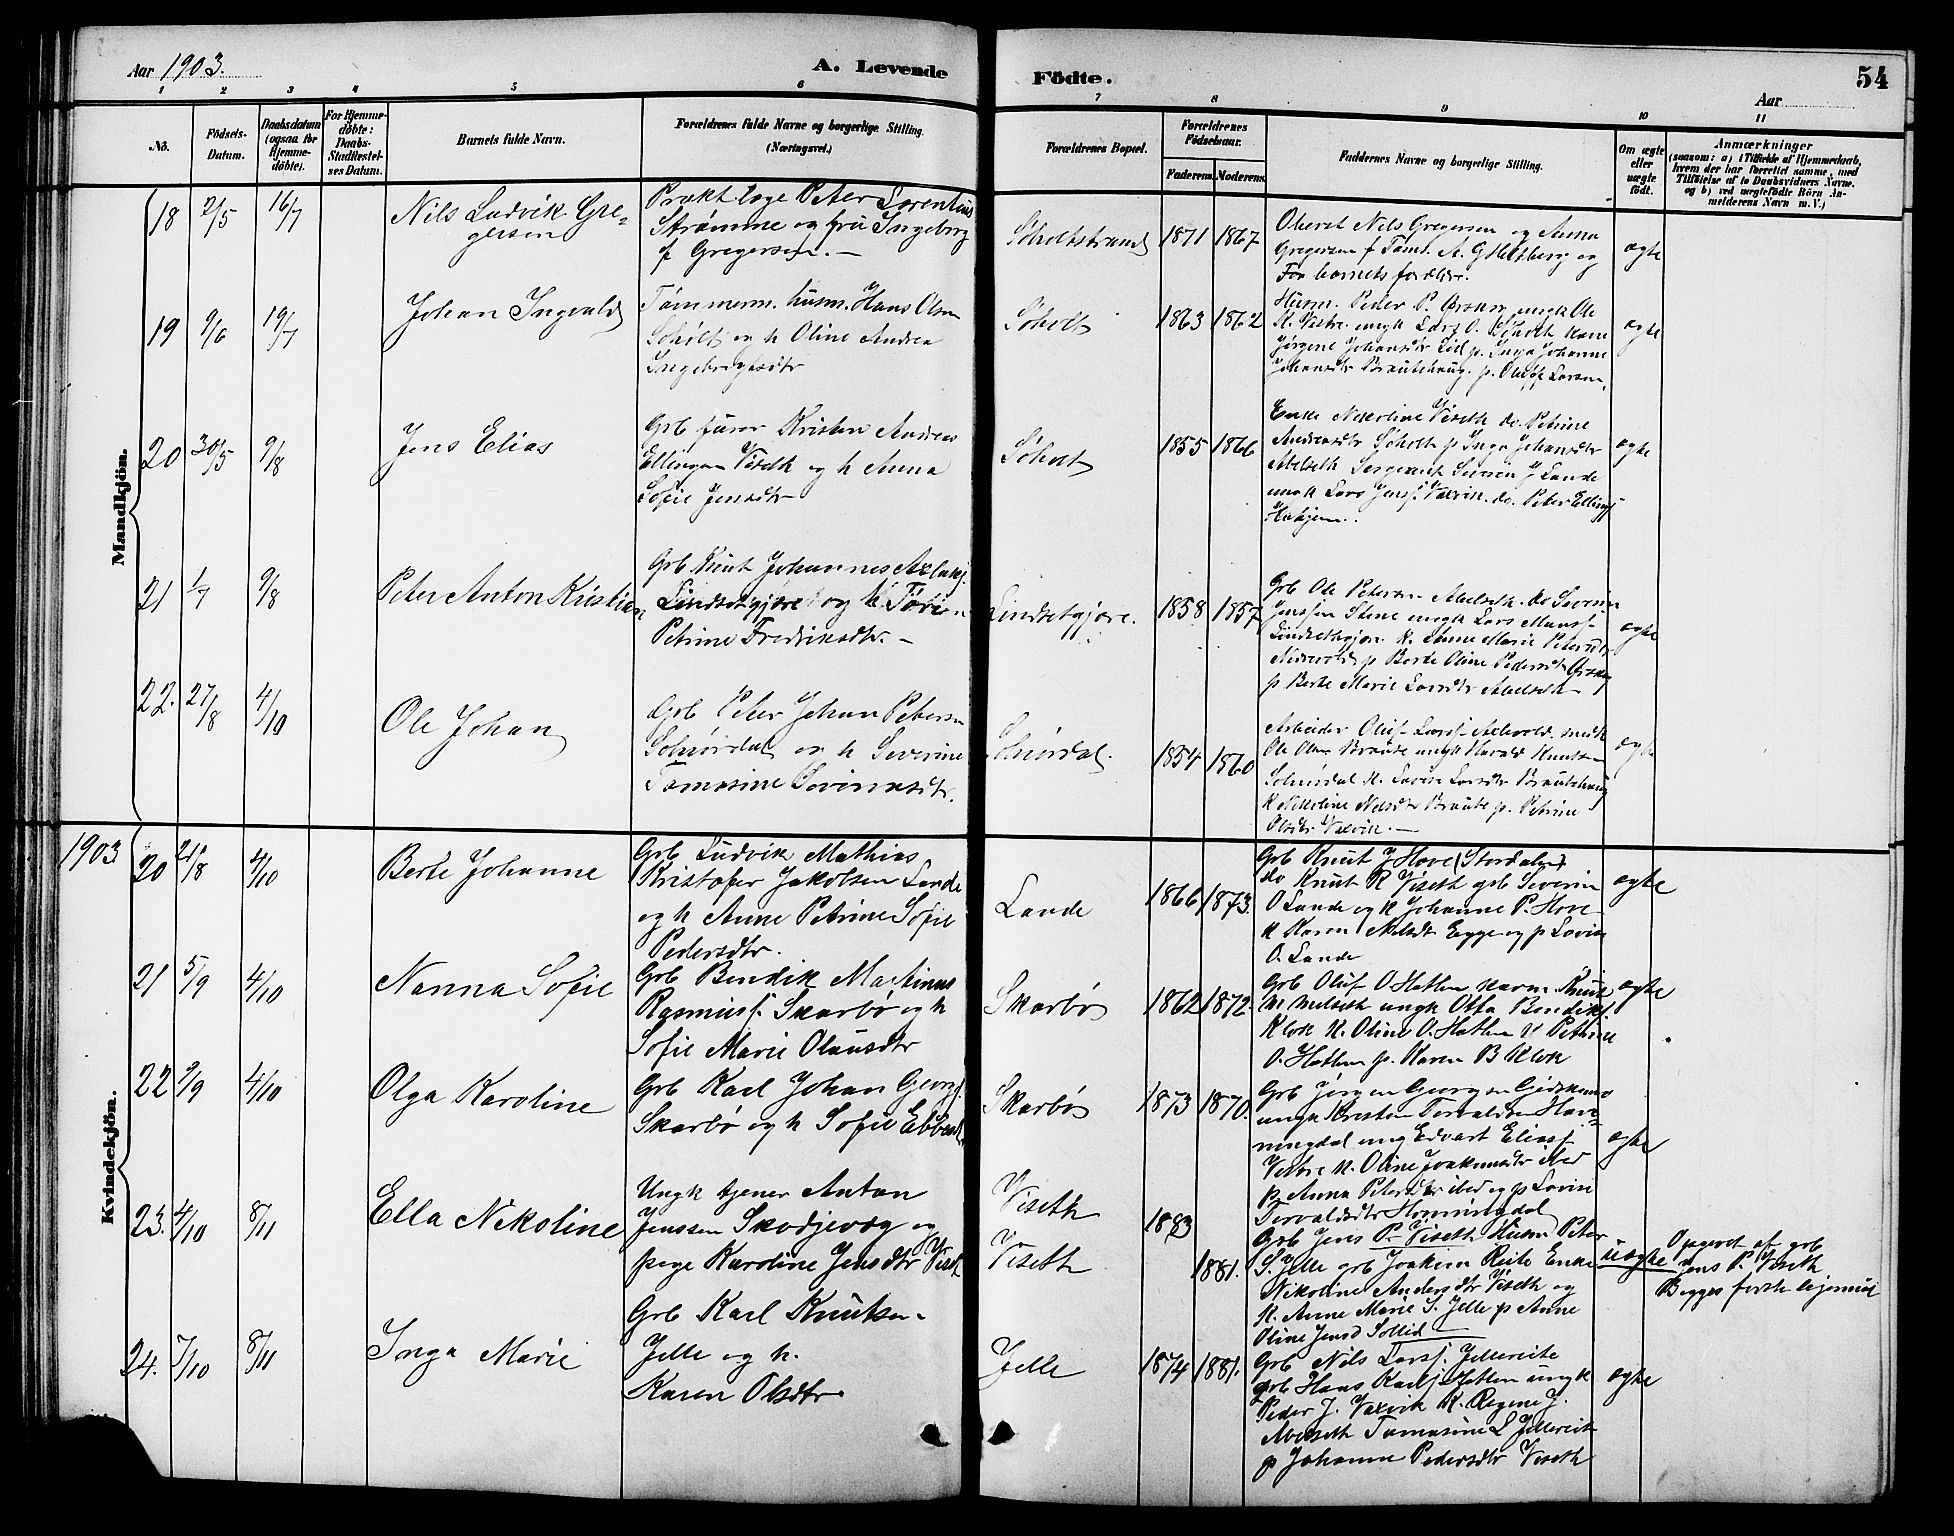 Aar 1903.
A. Levende
Födte.
54
Aar
1 2 3 4 5 6 7 8 9 10 11
No.
Födsels-
Datum.
Daabsdatum
(ogsaa for
Hjemme-
döbte).
For Hjemme-
döbte:
Daabs-
Stadfæstel-
ses Datum.
Barnets fulde Navn.
Forældrenes fulde Navne og borgerlige Stilling.
(Næringsvei.)
Forældrenes Bopæl.
Forældrenes
Födselsaar.
Faderens. Moderens.
Faddernes Navne og borgerlige Stilling.
Om ægte
eller
uægte
födt.
Anmærkninger
(saasom: a) i Tilfælde af Hjemmedaab,
hvem der har forrettet samme, med
Tilföielse af to Daabsvidners Navne.
og b) ved uægtefödte Börn An-
melderens Navn m.V.)
Mandkjön.
18 2/5 16/7
Nils Ludvik Gre-
gersen
Prakt. læge Peter Lorentius
Strømme og fru Ingeborg
f Gregersen. —
Søholtstrand 1871 1867
Nils Gregersen og Anna
Gregersen f
Fru barnets forældre.
ægte
19 9/6 19/7
Johan Ingvald
Tømmerm. husm. Hans Olsen
Søholt og h Oline Andrea
Ingebrigtsdtr
Søholt 1863 1862
Husm. Peder P. Ørskog ungk Ole
H. Vestre ungk Lars O. Søholt kone
Jørgine Johansdtr Lid p. Inga Johanne
Johansdtr Brautehaug. p. Oluffe Larsen.
ægte
20 30/5 9/8
Jens Elias
Grb furer Kristen Andreas
Ellingsen Viseth og h Anna
Sofie Jensdtr
Søholt 1855 1866
Enke Nikoline Viseth do. Petrine
Andreasdtr Søholt p Inga Johansdtr
Abelseth Sergeant Severin J Lande
ungk Lars Jenss. Vaxvik do. Peter Ellingss
ægte
21 1/7 9/8
Peter Anton Kristian
Grb Knut Johannes Axlaks.
Lindsetgjære og h
Petrine Fredriksdtr. —
Lindsetgjære. 1858 1857
Grb Ole Petersen Abelseth. do Severin
Jenssen Stene ungk Lars Monss.
Lindsetgjære K. Anne Marie Petersdtr
p Berte Oline Pedersdtr Ørskog
p Berte Marie Larsdtr Abelseth
ægte
22. 27/8 4/10
Ole Johan
Grb Peter Johan Petersen
Solnørdal og h Severine
Tomasine
Solnørdal. 1854 1860
Arbeider Oluf Larss.
Ole Olsen Braute ungk Harald Knutsen
Solnørdal K. Lovise Larsdtr Brautehaug
K Nikoline Nilsdtr Braute p. Petrine
Olsdtr Vaxvik. —
ægte
1903
Kvindekjön.
20 21/8 4/10
Berte Johanne
Grb Ludvik Mathias
Kristofer Jakobsen Lande
og h Anne Petrine Sofie
Pedersdtr.
Lande 1866 1873.
Grb Knut J Hove (Stordalen)
do Knut R Viseth grb Severin
O Lande og K Johanne P. Hove
K Karen Nilsdtr Egge og p Lovise
O. Lande
ægte
21 5/9 4/10
Nanna Sofie
Grb Bendik Martinus
Rasmuss. Skarbø og h
Sofie Marie Olausdtr
Skarbø 1862 1872.
Grb Oluf O Hatlen Knut
M Melseth ungk Otto Bendiks.
Klok K. Oline O. Hatlen K Petrine
O. Hatlen p. Karen B Klok
ægte
22 9/9 4/10
Olga Karoline
Grb Karl Johan Georgs.
Skarbø og h Sofie
Skarbø 1873 1870.
Grb Jørgen Georgsen Gjedskemo
ungk Kristen Torvaldsen Hon-
ningdal ung Edvart Eliass
Vestre K. Oline Joakimsdtr sted
p Anna Petersdtr ibed og p Lovise
Torvaldsdtr Honningdal
ægte
23. 4/10 8/11
Ella Nikoline
Ungk tjener Anton
Jenssen Skodjevæg og
pige Karoline Jensdtr Viseth
Viseth
Viseth
1883
1881.
Grb Jens P. Viseth Husm Peter
S. Jelle grb Joakim Reite Enke
Nikoline Andersdtr Viseth og
K. Anne Marie S. Jelle p Anne
Oline Jensd Sollid
uægte
Opgivet af grb
Jens P. Viseth
Begges første leiermaal
24. 7/10 8/11
Inga Marie
Grb Karl Knutsen
Jelle og h.
Karen Olsdtr
Jelle 1874 1881.
Grb Nils Larss. Jellereite
grb Hans Karls. Hatlen ungk
Peder J. Vaxvik K. Regine J.
Abelseth Tomasine L Jellereite
p Johanne Pedersdtr Viseth
ægte